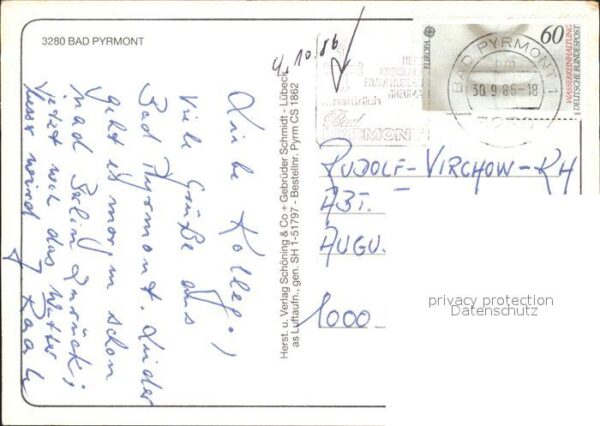 3280 BAD PYRMONT
4.10.86
Liebe Kolleg.,
Viele Grüße aus
Bad Pyrmont. Leider
geht es morgen schon
nach Berlin zurück;
jetzt wo das Wetter
besser wird
Herst. u. Verlag Schöning & Co + Gebrüder Schmidt - Lübeck
as Luftaufn., gen. SH 1-51797 - Bestellnr. Pyrm CS 1862
...natürlich
Bad
PYRMONT
BAD PYRMONT 1
30.9.86-18
EUROPA
60
WASSERREINHALTUNG
DEUTSCHE BUNDESPOST
RUDOLF-VIRCHOW-KH
ABT.
AUGU
1000
privacy protection
Datenschutz